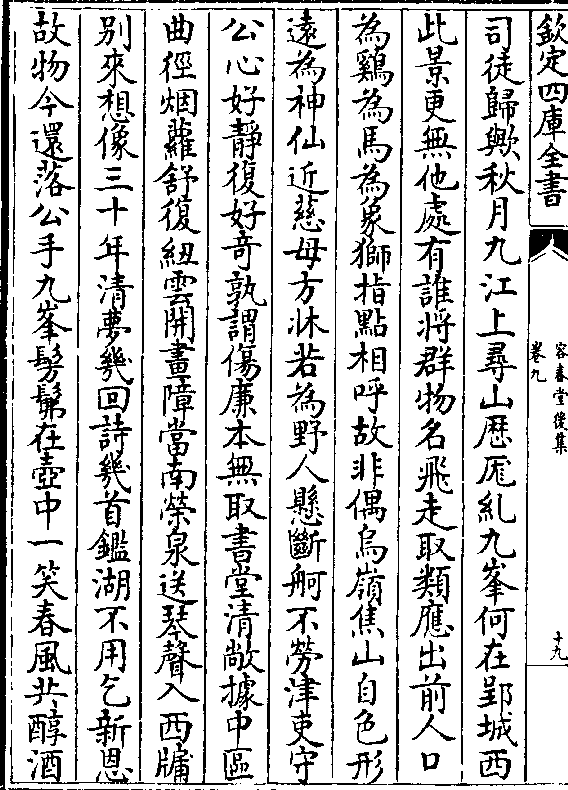 欽定四庫全書
容春堂後集
卷九
十九
司徒歸歟秋月九江上尋山歷㕒糺九峯何在郢城西
此景更無他處有誰將群物名飛走取類應出前人口
為鷄為馬為象獅指點相呼故非偶烏嶺焦山自色形
遠為神仙近慈母方牀若為野人懸斷舸不勞津吏守
公心好靜復好竒孰謂傷亷本無取書堂清敞據中區
曲徑烟蘿舒復紐雲開畫障當南榮泉送琴聲入西牖
别來想像三十年清夢幾回詩幾首鑑湖不用乞新恩
故物今還落公手九峯髣髴在壺中一笑春風共醇酒